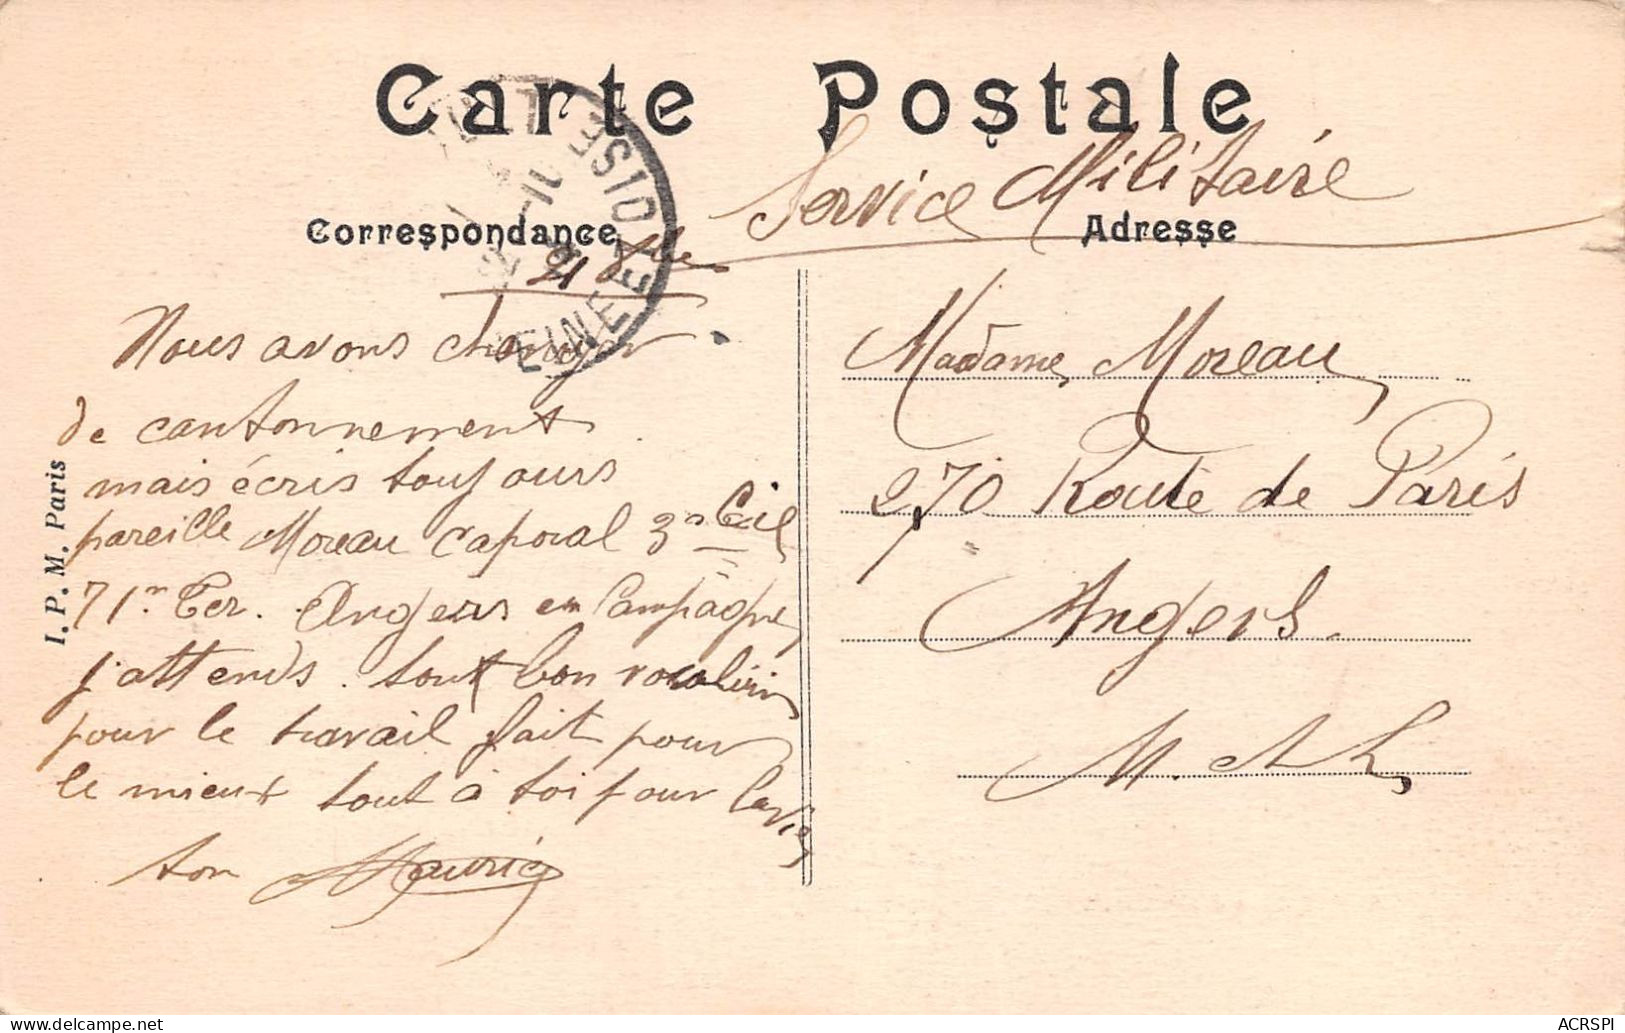 Carte Postale
Service Militaire
Correspondance
Adresse
SEINE ET OISE
21
Nous avons changer
de cantonnement
mais écris toujours
pareille Moreau caporal 3e Cie
71e Ter. Angers en Campagne
j'attends tout bon
pour le travail fait pour
le mieux tout à toi pour la vie
ton Maurice
I. P. M. Paris
Madame Moreau
270 Route de Paris
Angers.
M. et L.
ACRSPI